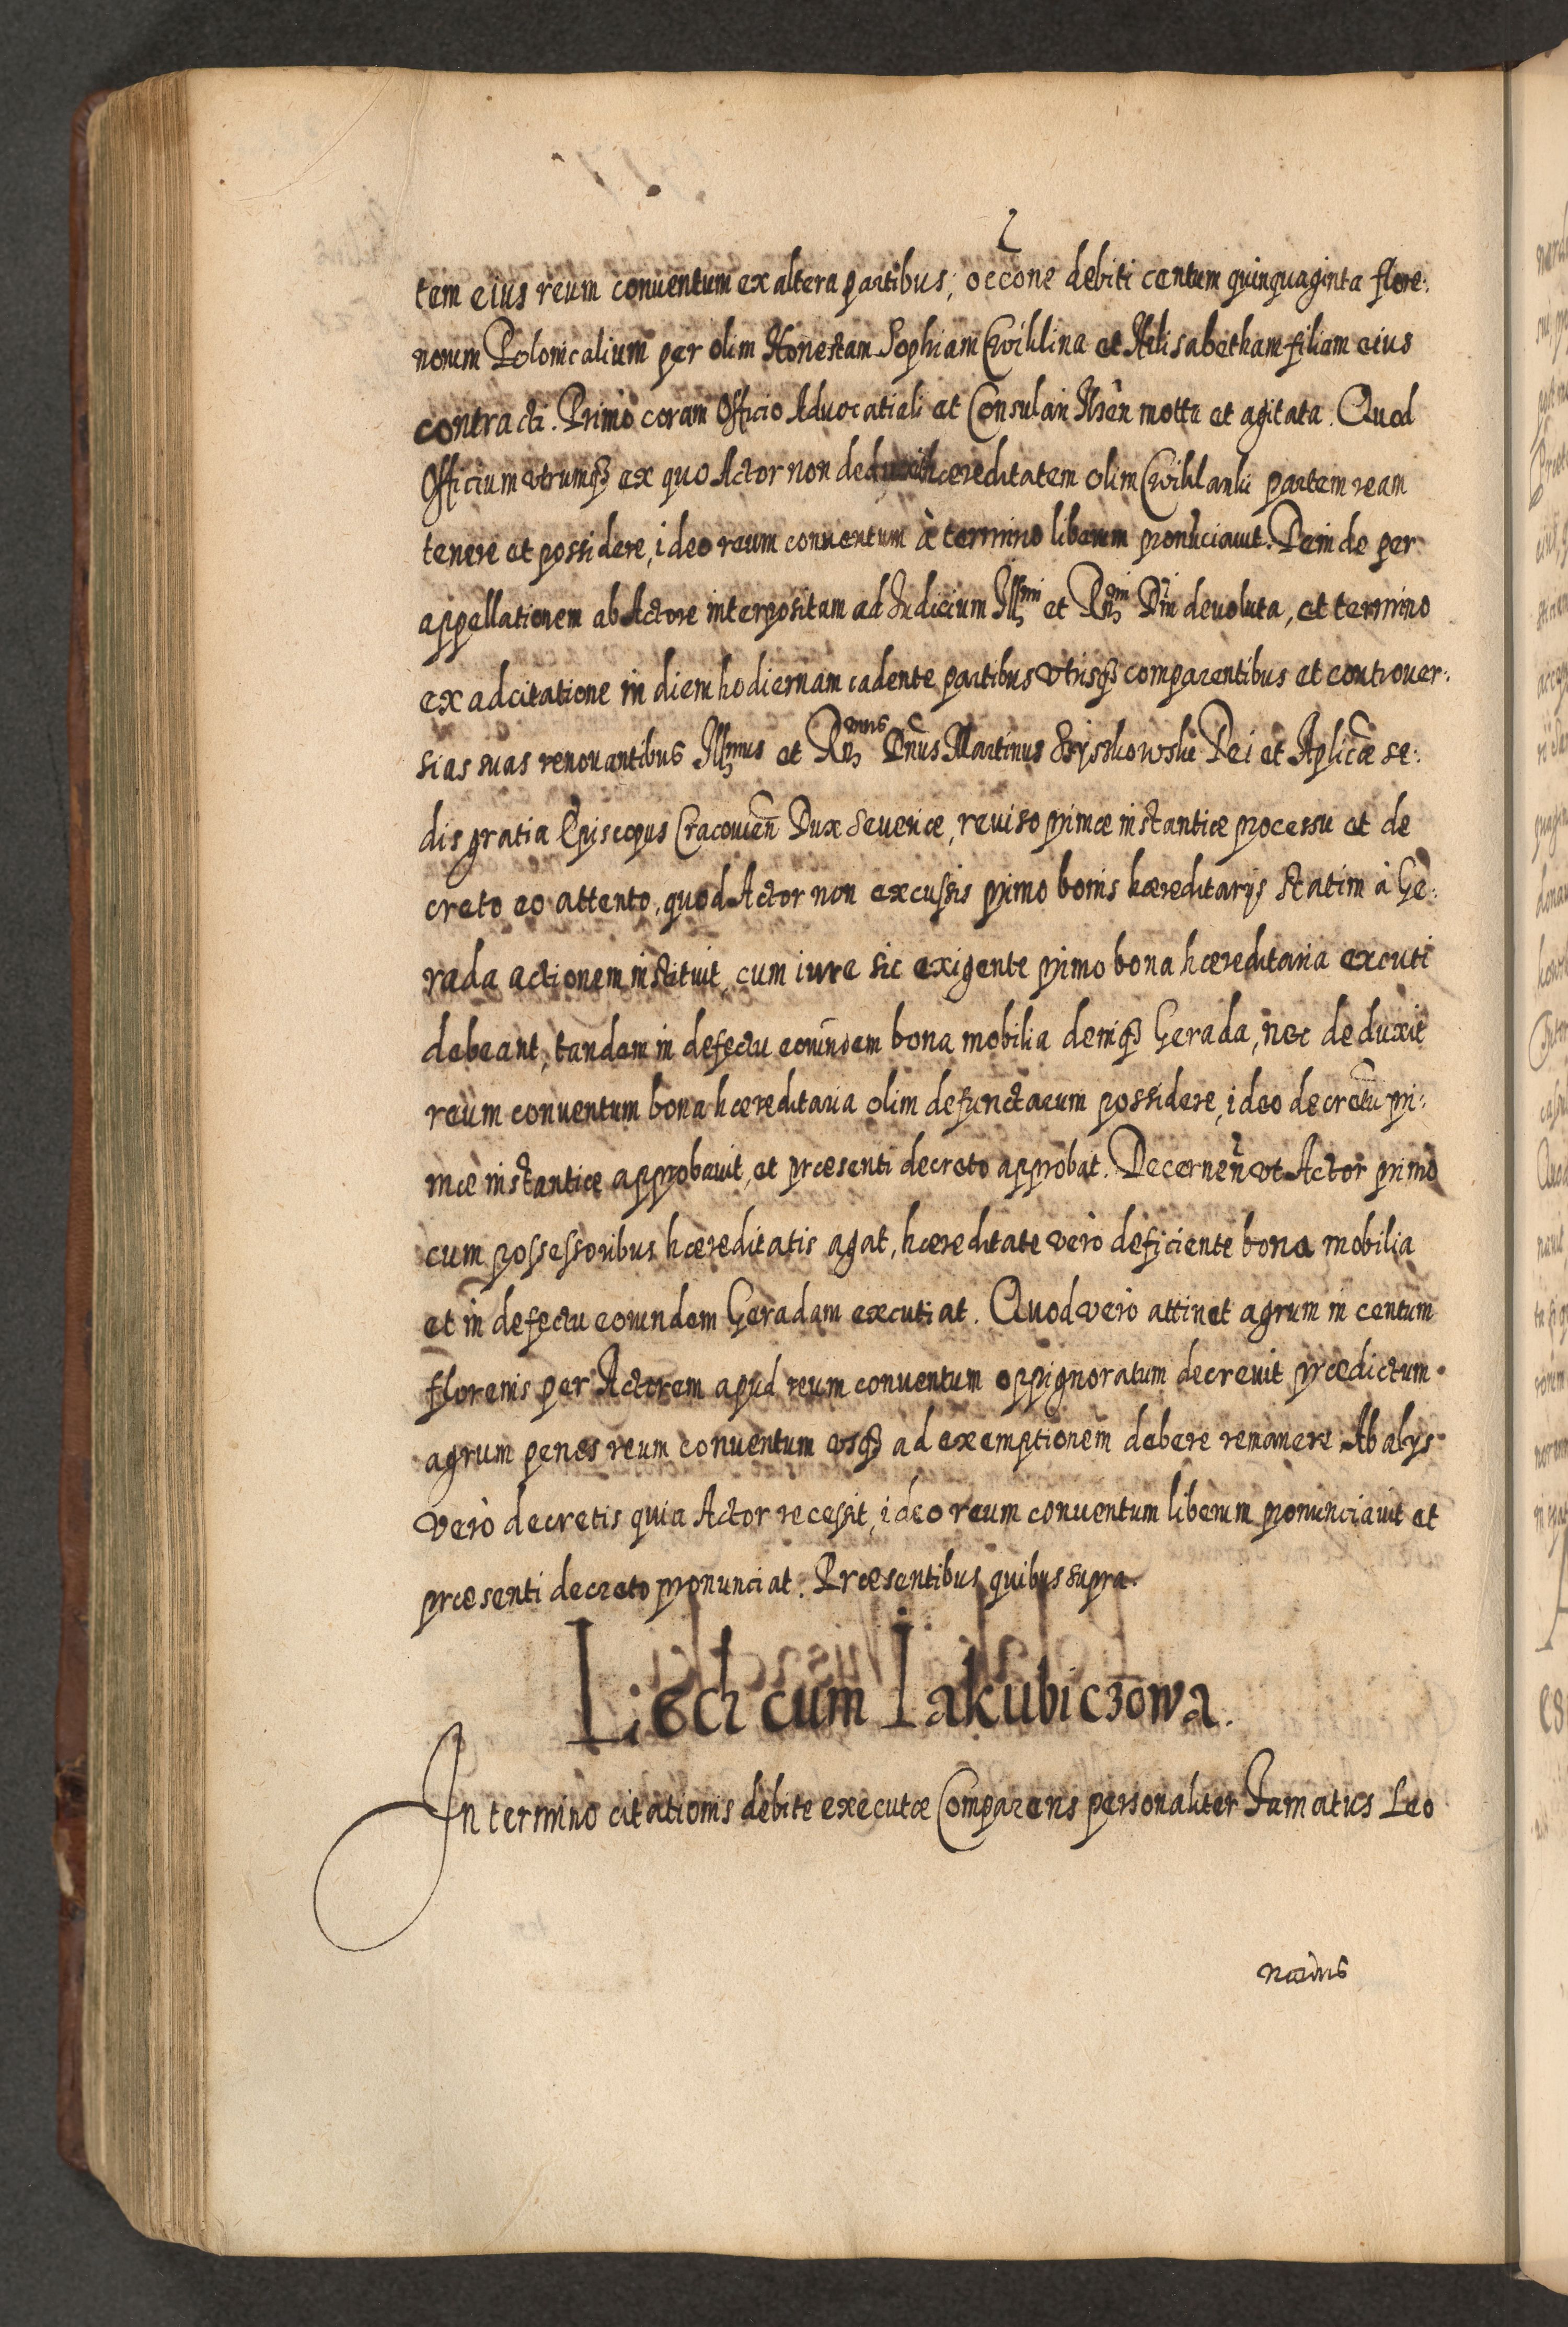 tem eius reum conuentum ex altera partibus, occõne debiti centum quinquaginta flore:
norum Polonicalium per olim Honestam Sophiam Cwiklina et Helisabetham filiam eius
contracti. Primo coram Officio Aduocatiali et Consulari Ilzen̄ motta et agitata. Quod
Officium vtrumq₃ ex quo Actor non deduxit hæreditatem olim Cwiklanki partem ream
tenere et possidere, ideo reum conuentum à termino liberum pronũciauit. Deinde per
appellationem ab Actore interpositam ad Iudicium Illmi et Rñmi Dn̄i deuoluta, et termino
ex adcitatione in diem hodiernam cadente partibus vtrisq₃ comparentibus et controuer:
sias suas renouantibus Illmus et Rñmus Dñus Martinus Szyszkowski Dei et Aplicæ se:
dis gratia Episcopus Cracouien̄ Dux Seueriæ, reuiso primæ instantiæ processu et de
creto eo attento, quod Actor non excussis primo bonis hæreditarijs statim à Ge:
rada actionem instituit, cum iure sic exigente primo bona hæreditaria excuti
debeant, tandem in defectu eorundem bona mobilia deniq₃ Gerada, nec deduxit
reum conuentum bona hæreditaria olim defunctarum possidere, ideo decretũ pri:
mæ instantiæ approbauit, et præsenti decreto approbat. Decernen̄ vt Actor primo
cum possessoribus hæreditatis agat, hæreditate verò deficiente bona mobilia
et in defectu eorundem Geradam excutiat. Quod vero attinet agrum in centum
florenis per Actorem apud reum conuentum oppignoratum decreuit prædictum
agrum penes reum conuentum vsq₃ ad exemptionem debere remanere. Ab alijs
verò decretis quia Actor recessit, ideo reum conuentum liberum pronunciauit et
præsenti decreto pronunciat. Præsentibus quibus supra.
Lisch cum Iakubiczowa.
In termino citationis debite executæ Comparens personaliter Famatus Leo